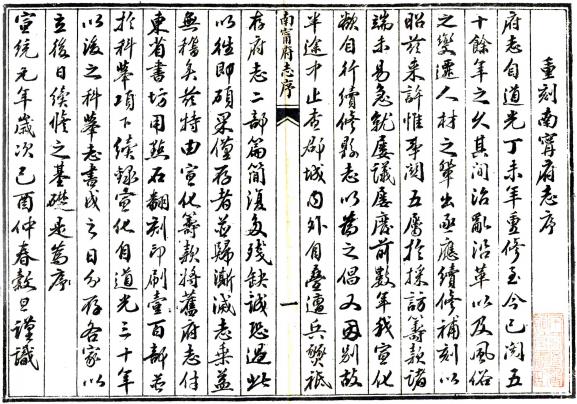 重刻南甯府志序
府志自道光丁未年重修至今已閲五
十餘年之久其间治亂沿革以及風俗
之變遷人材之輩出亟應續修補刻以
昭茲来許惟事関五屬於採訪籌款諸
端未易急就屢議屢廢前數年我宣化
欲自行續修縣志以為之倡又因别故
半途中止查郡城内外自叠遭兵燹祗
南甯府志序
一
存府志二部篇简復多残缺诚恐過此
以往即碩果僅存者並歸漸滅志乘益
無稽矣茲特由宣化籌款將舊府志付
東省書坊用點石翻刻印刷壹百部並
於科舉項下續錄宣化自道光三十年
以後之科舉志書成之日分存各家以
立後日續修之基礎是為序
宣統元年歲次己酉仲春穀旦謹識